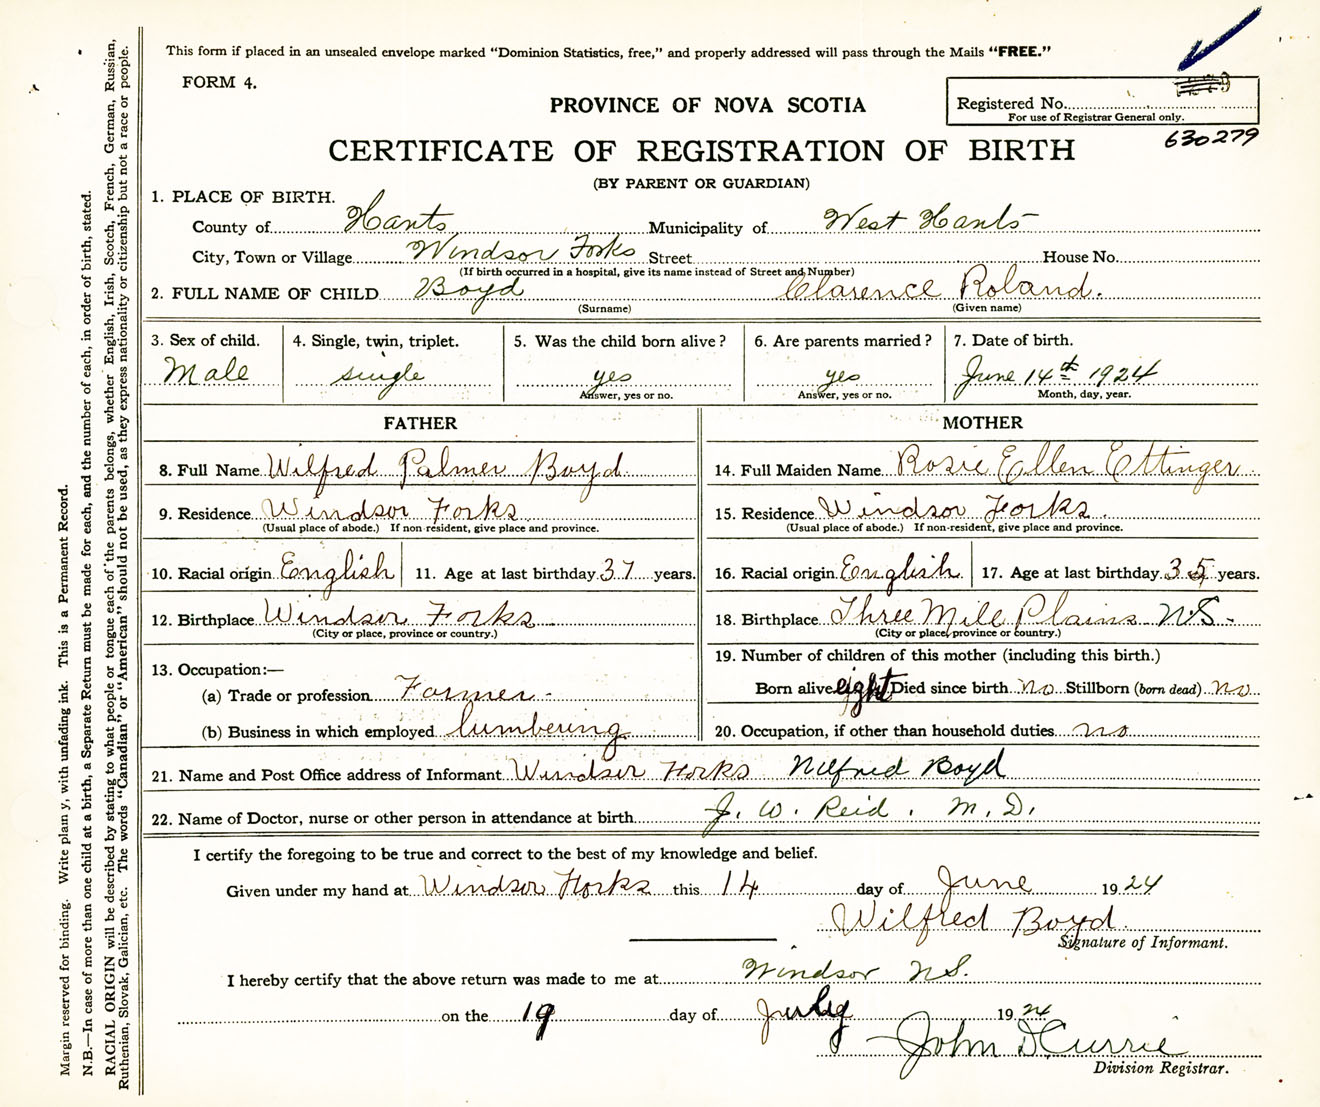 This form if placed in an unsealed envelope marked "Dominion Statistics, free," and properly addressed will pass through the Mails "FREE."
FORM 4.
PROVINCE OF NOVA SCOTIA
Registered No.
For use of Registrar General only.
630279
CERTIFICATE OF REGISTRATION OF BIRTH
(BY PARENT OR GUARDIAN)
1. PLACE OF BIRTH.
County of Hants Municipality of West Hants
City, Town or Village Windsor Forks Street House No.
(If birth occurred in a hospital, give its name instead of Street and Number)
2. FULL NAME OF CHILD Boyd Clarence Roland.
(Surname) (Given name)
3. Sex of child. 4. Single, twin, triplet. 5. Was the child born alive? 6. Are parents married? 7. Date of birth.
Male single yes yes June 14th 1924
Answer, yes or no. Answer, yes or no. Month, day, year.
FATHER MOTHER
8. Full Name Wilfred Palmer Boyd 14. Full Maiden Name Rosie Ellen Ettinger
9. Residence Windsor Forks 15. Residence Windsor Forks.
(Usual place of abode.) If non-resident, give place and province. (Usual place of abode.) If non-resident, give place and province.
10. Racial origin English 11. Age at last birthday 37 years. 16. Racial origin English 17. Age at last birthday 35 years.
12. Birthplace Windsor Forks 18. Birthplace Three Mile Plains N.S.
(City or place, province or country.) (City or place, province or country.)
13. Occupation:— 19. Number of children of this mother (including this birth.)
(a) Trade or profession Farmer Born alive eight Died since birth no Stillborn (born dead) no
(b) Business in which employed lumbering 20. Occupation, if other than household duties no
21. Name and Post Office address of Informant Windsor Forks Wilfred Boyd
22. Name of Doctor, nurse or other person in attendance at birth J. W. Reid. M.D.
I certify the foregoing to be true and correct to the best of my knowledge and belief.
Given under my hand at Windsor Forks this 14 day of June 1924
Wilfred Boyd.
Signature of Informant.
I hereby certify that the above return was made to me at Windsor N.S.
on the 19 day of July 1924
John D Currie
Division Registrar.
Margin reserved for binding. Write plainy, with unfading ink. This is a Permanent Record.
N.B.—In case of more than one child at a birth, a Separate Return must be made for each, and the number of each, in order of birth, stated.
RACIAL ORIGIN will be described by stating to what people or tongue each of the parents belongs, whether English, Irish, Scotch, French, German, Russian,
Ruthenian, Slovak, Galician, etc. The words "Canadian" or "American" should not be used, as they express nationality or citizenship but not a race or people.